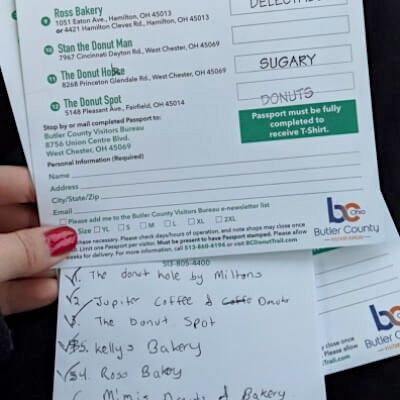 DELECTABLE
9 Ross Bakery
1051 Eaton Ave., Hamilton, OH 45013
or 4421 Hamilton Cleves Rd., Hamilton, OH 45013
10 Stan the Donut Man
7967 Cincinnati Dayton Rd., West Chester, OH 45069
11 The Donut House
8268 Princeton Glendale Rd., West Chester, OH 45069
SUGARY
12 The Donut Spot
5148 Pleasant Ave., Fairfield, OH 45014
DONUTS
Stop by or mail completed Passport to:
Butler County Visitors Bureau
8756 Union Centre Blvd.
West Chester, OH 45069
Passport must be fully
completed to
receive T-Shirt.
Personal Information (Required)
Name
Address
City/State/Zip
Email
Please add me to the Butler County Visitors Bureau e-newsletter list
Size YL S M L XL 2XL
bc Ohio
Butler County
VISITORS BUREAU
purchase necessary. Please check days/hours of operation, and note shops may close once
Limit one Passport per visitor. Must be present to have Passport stamped. Please allow
weeks for delivery. For more information, call 513-860-4194 or visit BCDonutTrail.com.
513-805-4400
1. The donut hole by Miltons
2. Jupiter Coffee & Donuts
3. The Donut Spot
5. Kellys Bakery
4. Ross Bakery
Mimi's Donuts & Bakery
y close once
Please allow
Trail.com
bc
Butler C